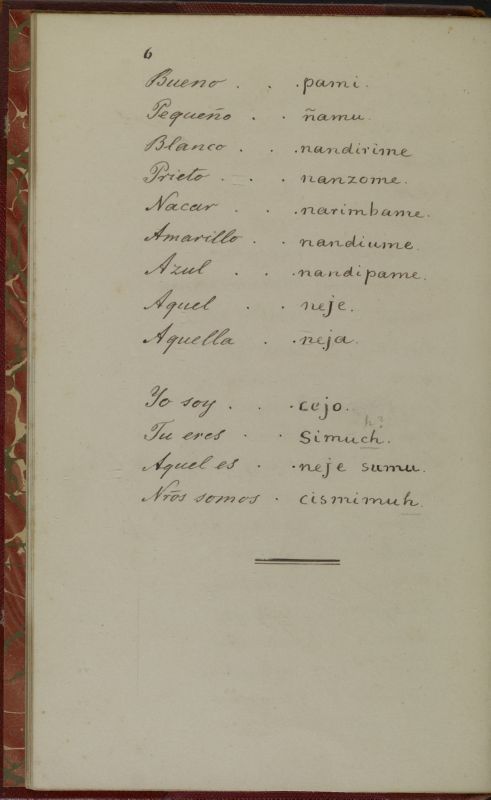 6
Bueno . . . pami.
Pequeño . . ñamu.
Blanco . . . nandirime
Prieto . . . nanzome.
Nacar . . . narimbame.
Amarillo . . nandiume.
Azul . . . nandipame.
Aquel . . neje.
Aquella . . neja.
Yo soy . . . cejo.
h?
Tu eres . . Simuch.
Aquel es . . neje sumu.
Nrõs somos . cismimuh.